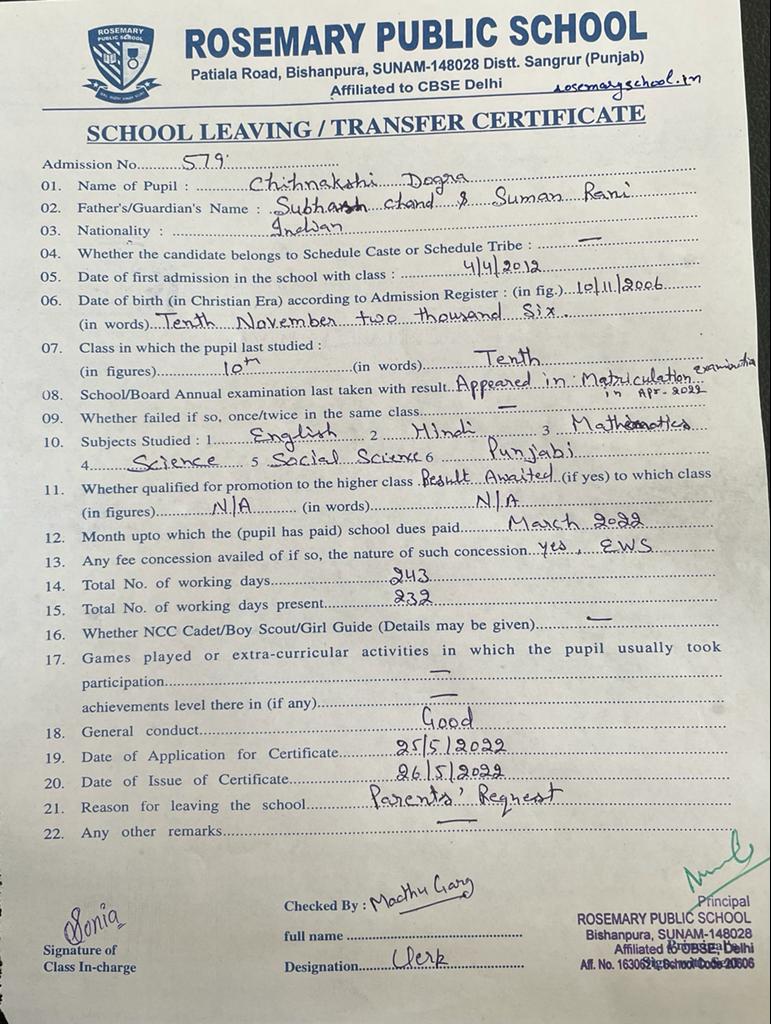 ROSEMARY
PUBLIC SCHOOL
ROSEMARY PUBLIC SCHOOL
Patiala Road, Bishanpura, SUNAM-148028 Distt. Sangrur (Punjab)
Affiliated to CBSE Delhi
rosemaryschool.in
SCHOOL LEAVING / TRANSFER CERTIFICATE
Admission No. 579
01. Name of Pupil : Chihnakshi Dogra
02. Father's/Guardian's Name : Subhash chand & Suman Rani
03. Nationality : Indian
04. Whether the candidate belongs to Schedule Caste or Schedule Tribe : —
05. Date of first admission in the school with class : 4/4/2012
06. Date of birth (in Christian Era) according to Admission Register : (in fig.) 10/11/2006
(in words) Tenth November two thousand Six.
07. Class in which the pupil last studied :
(in figures) 10th (in words) Tenth
08. School/Board Annual examination last taken with result Appeared in Matriculation examination
in Apr-2022
09. Whether failed if so, once/twice in the same class —
10. Subjects Studied : 1 English 2 Hindi 3 Mathematics
4 Science 5 Social Science 6 Punjabi
11. Whether qualified for promotion to the higher class Result Awaited (if yes) to which class
(in figures) N/A (in words) N/A
12. Month upto which the (pupil has paid) school dues paid March 2022
13. Any fee concession availed of if so, the nature of such concession yes, EWS
14. Total No. of working days 243
15. Total No. of working days present 232
16. Whether NCC Cadet/Boy Scout/Girl Guide (Details may be given) —
17. Games played or extra-curricular activities in which the pupil usually took
participation —
achievements level there in (if any) —
18. General conduct Good
19. Date of Application for Certificate 25/5/2022
20. Date of Issue of Certificate 26/5/2022
21. Reason for leaving the school Parents' Request
22. Any other remarks —
Sonia
Signature of
Class In-charge
Checked By : Madhu Garg
full name
Designation Clerk
Principal
ROSEMARY PUBLIC SCHOOL
Bishanpura, SUNAM-148028
Affiliated to CBSE, Delhi
Aff. No. 1630624 School Code 20606